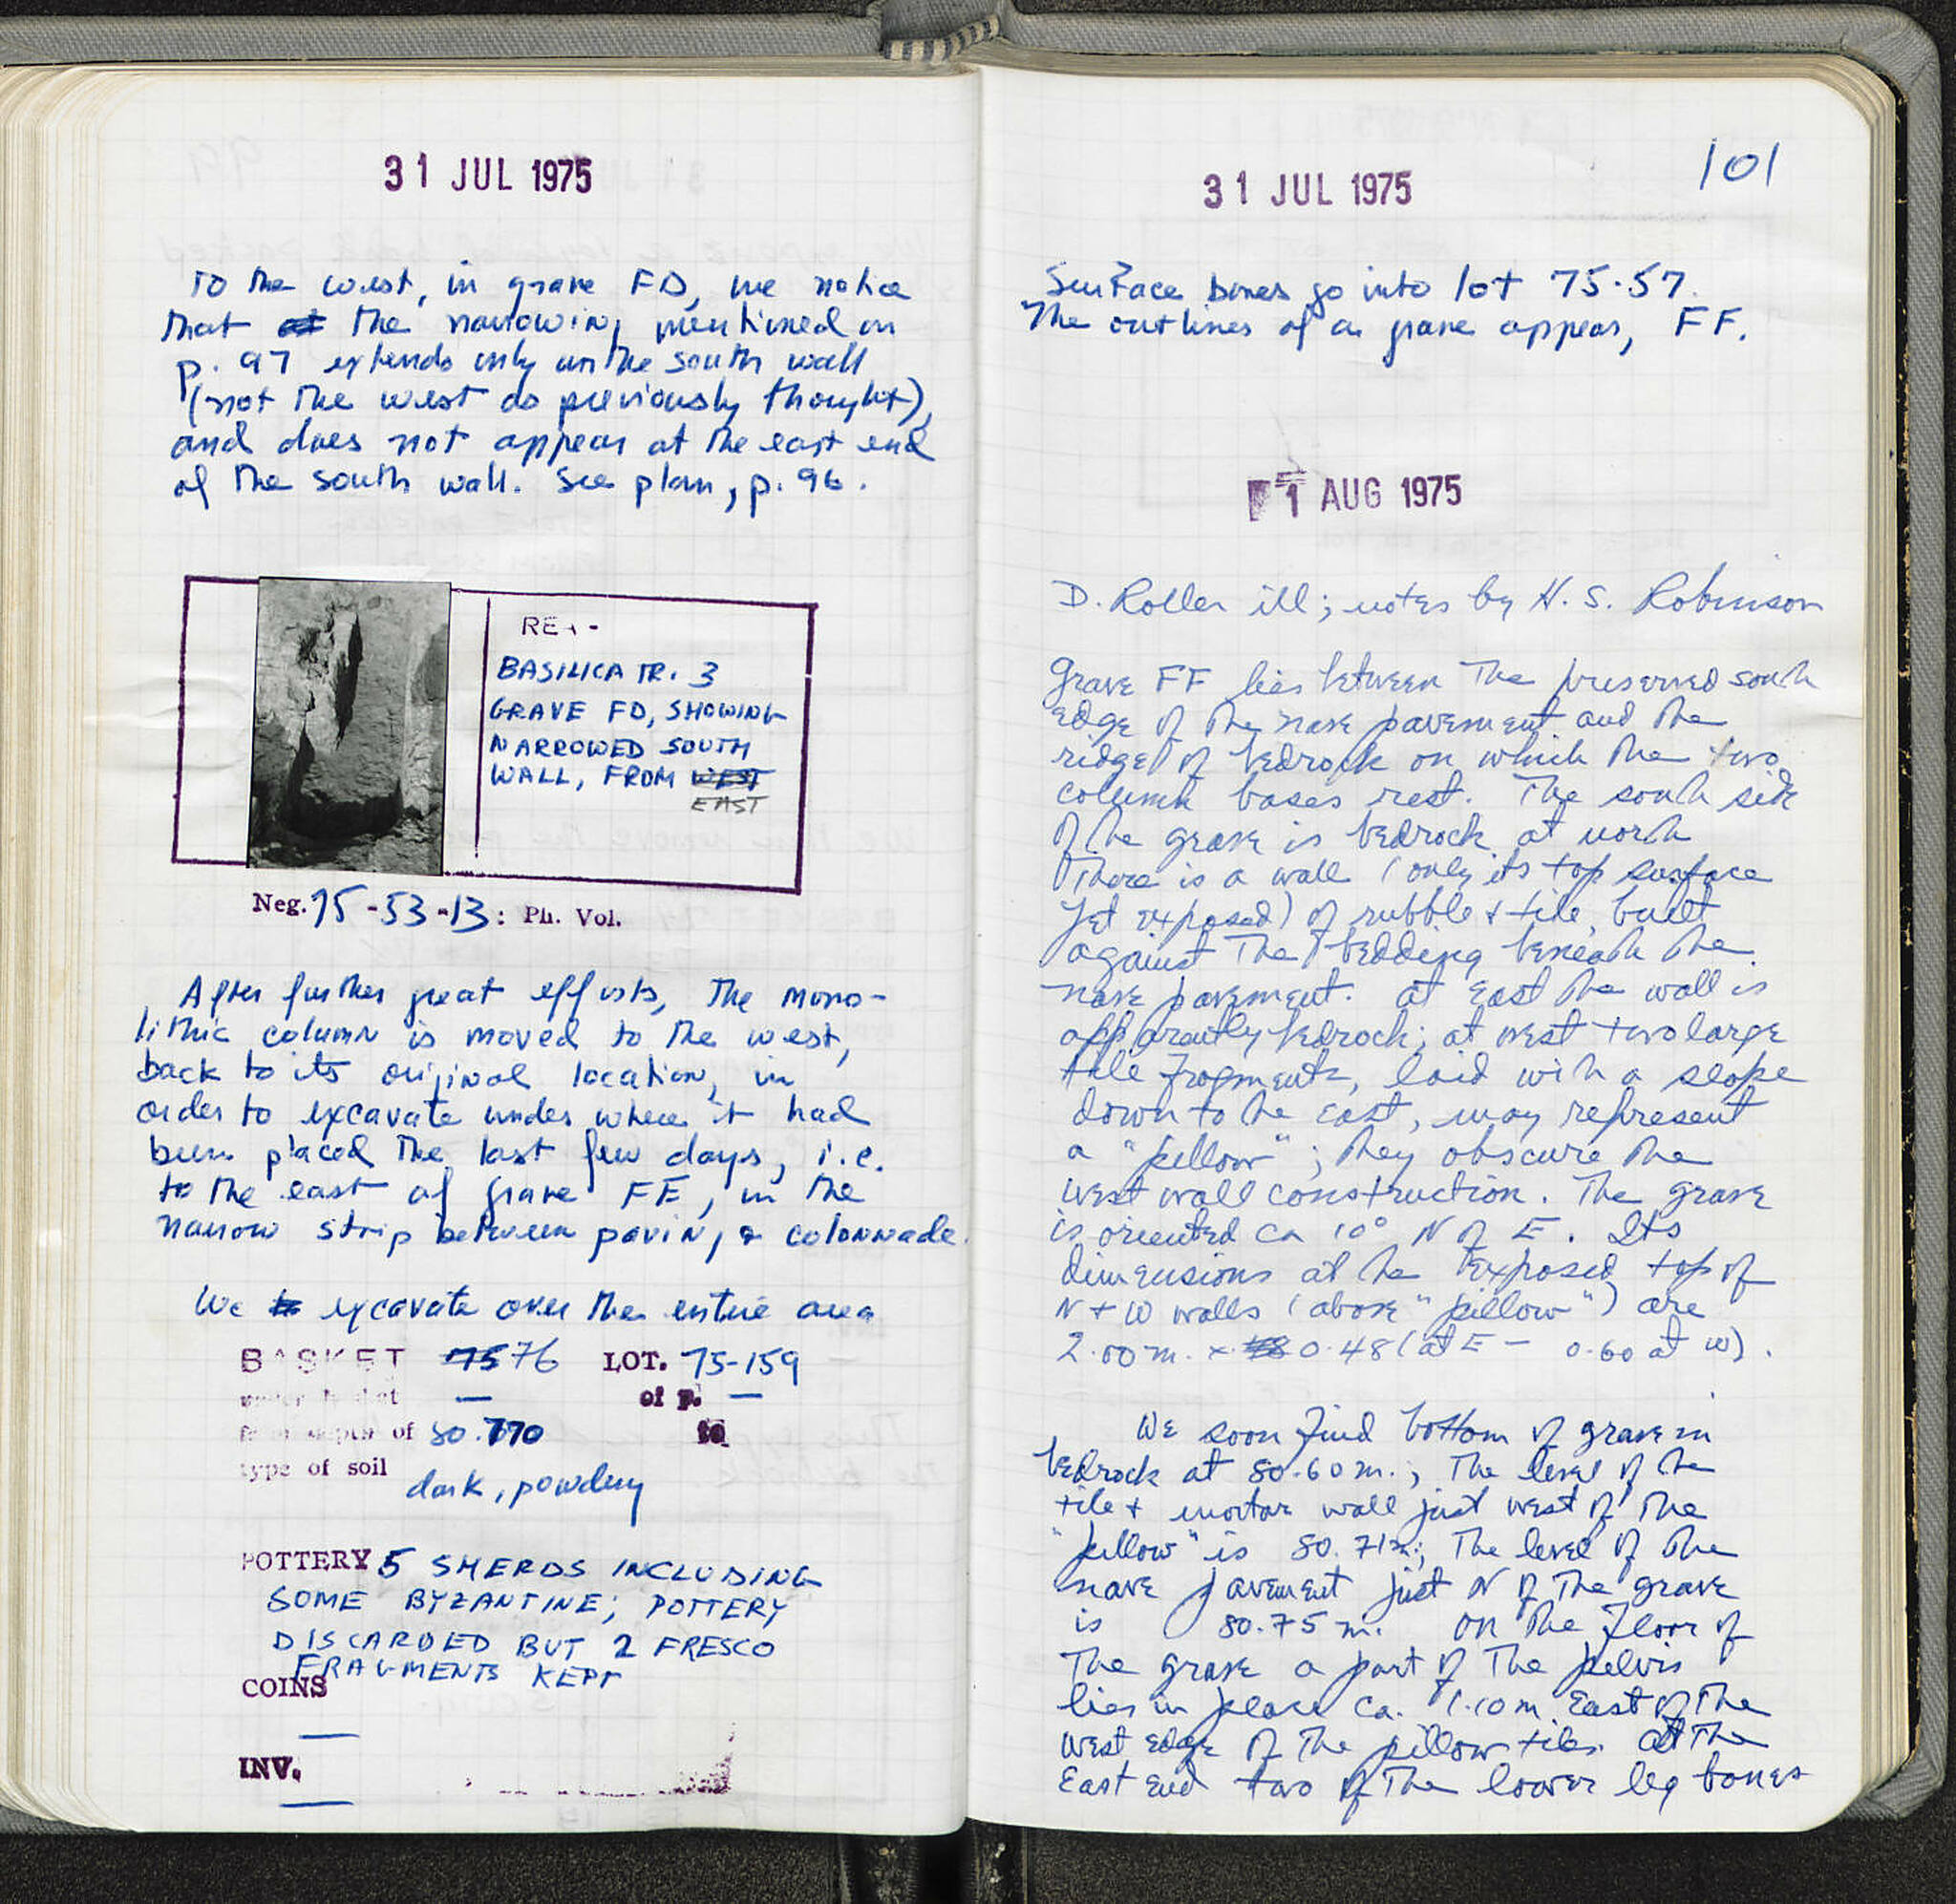 31 JUL 1975
To the west, in grave FD, we notice
that at the narrowing mentioned on
p. 97 extends only on the south wall
(not the west as previously thought),
and does not appear at the east end
of the south wall. See plan, p. 96.
BASILICA TR. 3
GRAVE FD, SHOWING
NARROWED SOUTH
WALL, FROM WEST
EAST
Neg. 75-53-13: Ph. Vol.
After further great efforts, the mono-
lithic column is moved to the west,
back to its original location, in
order to excavate under where it had
been placed the last few days, i.e.
to the east of grave FE, in the
narrow strip between paving & colonnade.
We excavate over the entire area
BASKET 75 76 LOT. 75-159
under basket — of p. —
from depth of 80.770 to
type of soil
dark, powdery
POTTERY 5 SHERDS INCLUDING
SOME BYZANTINE; POTTERY
DISCARDED BUT 2 FRESCO
FRAGMENTS KEPT
COINS
—
INV.
—
101
31 JUL 1975
Surface bones go into lot 75-57.
The outlines of a grave appear, FF.
1 AUG 1975
D. Roller ill; notes by H. S. Robinson
Grave FF lies between the preserved south
edge of the nave pavement and the
ridge of bedrock on which the two
column bases rest. The south side
of the grave is bedrock at north
there is a wall (only its top surface
yet exposed) of rubble & tile, built
against the bedding beneath the
nave pavement. At east the wall is
apparently bedrock; at west two large
tile fragments, laid with a slope
down to the east, may represent
a "pillow"; they obscure the
west wall construction. The grave
is oriented ca 10° N of E. Its
dimensions at the exposed top of
N + W walls (above "pillow") are
2.00 m. x 0.48 (at E – 0.60 at W).
We soon find bottom of grave in
bedrock at 80.60 m.; the level of the
tile + mortar wall just west of the
"pillow" is 80.71 m; the level of the
nave pavement just N of the grave
is 80.75 m. On the floor of
the grave a part of the pelvis
lies in place ca. 1.10 m. East of the
west edge of the pillow tiles. At the
East end two of the lower leg bones